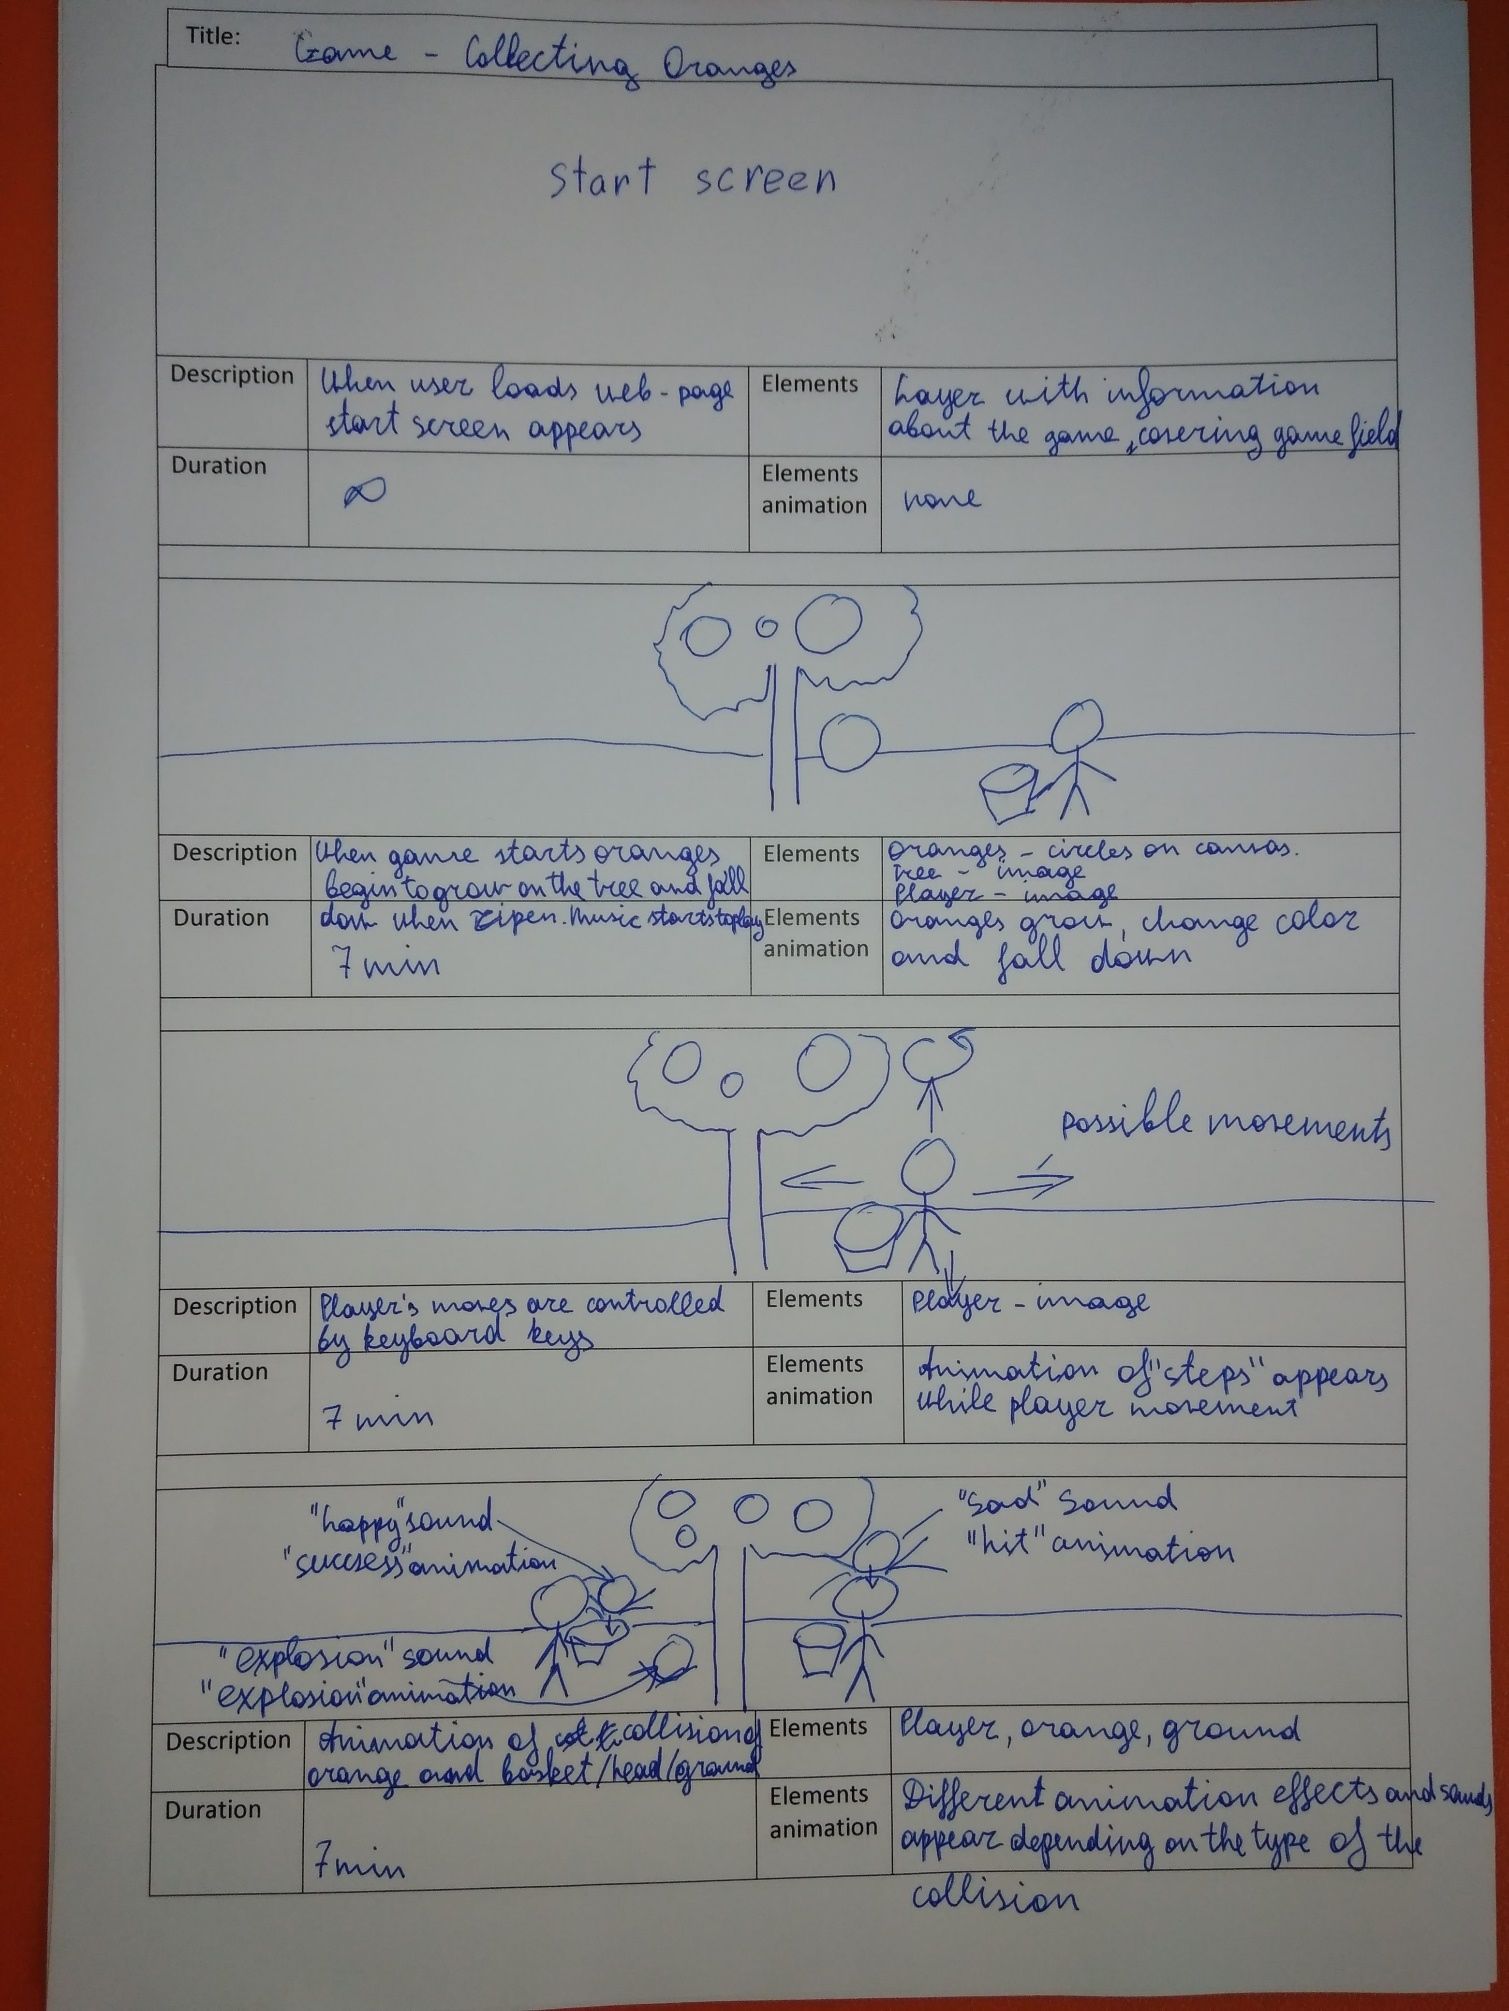 Title: Game - Collecting Oranges
Start screen
Description
When user loads web-page
start screen appears
Elements
Layer with information
about the game, covering game field
Duration
∞
Elements
animation
none
Description
When game starts oranges
begin to grow on the tree and fall
down when ripen. Music starts to play
Elements
Oranges - circles on canvas.
Tree - image
Player - image
Duration
7 min
Elements
animation
Oranges grow, change color
and fall down
possible movements
Description
Player's moves are controlled
by keyboard keys
Elements
Player - image
Duration
7 min
Elements
animation
Animation of "steps" appears
while player movement
"happy" sound
"success" animation
"Sad" sound
"hit" animation
"explosion" sound
"explosion" animation
Description
Animation of collision of
orange and basket/head/ground
Elements
Player, orange, ground
Duration
7 min
Elements
animation
Different animation effects and sounds
appear depending on the type of the
collision